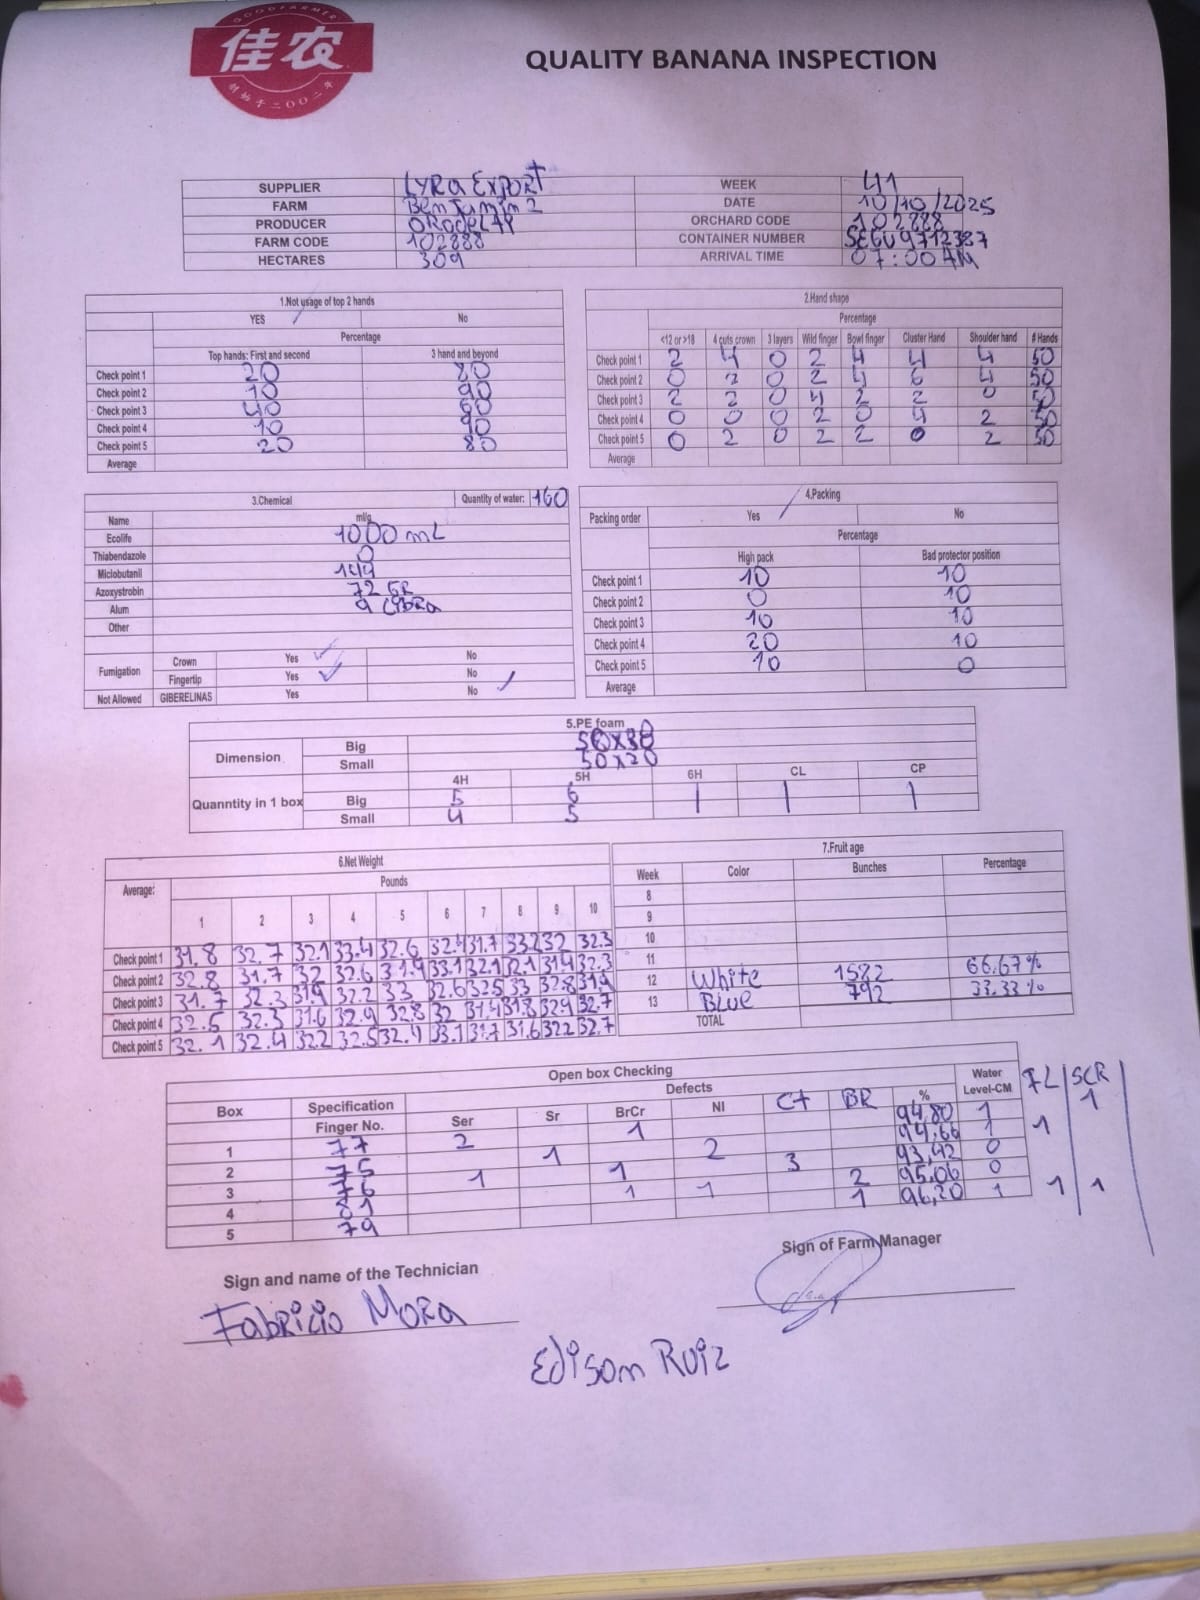 GOODFARMER
佳农
创始于二〇〇二年
QUALITY BANANA INSPECTION
SUPPLIER LYRA EXPORT WEEK 41
FARM Benjamin 2 DATE 10/10/2025
PRODUCER ORODELTY ORCHARD CODE 102888
FARM CODE 102888 CONTAINER NUMBER SEGU9712387
HECTARES 309 ARRIVAL TIME 07:00 AM
1.Not usage of top 2 hands
YES / No
Percentage
Top hands: First and second 3 hand and beyond
Check point 1 20 80
Check point 2 10 90
Check point 3 40 60
Check point 4 10 90
Check point 5 20 80
Average
2.Hand shape
Percentage
<12 or >18 4 cuts crown 3 layers Wild finger Bowl finger Cluster Hand Shoulder hand # Hands
Check point 1 2 4 0 2 4 4 4 50
Check point 2 0 2 0 2 4 6 4 50
Check point 3 2 2 0 4 2 2 0 50
Check point 4 0 0 0 2 0 4 2 50
Check point 5 0 2 0 2 2 0 2 50
Average
3.Chemical Quantity of water: 160
Name ml/g
Ecolife 1000 mL
Thiabendazole 0
Miclobutanil 144
Azoxystrobin 72 GR
Alum 9 LIBRA
Other
Fumigation Crown Yes ✓ No
Fingertip Yes ✓ No
Not Allowed GIBERELINAS Yes No /
4.Packing
Packing order Yes / No
Percentage
High pack Bad protector position
Check point 1 10 10
Check point 2 0 10
Check point 3 10 10
Check point 4 20 10
Check point 5 10 0
Average
5.PE foam
Dimension Big 50x38
Small 50x20
4H 5H 6H CL CP
Quanntity in 1 box Big 5 6 | | |
Small 4 5
6.Net Weight
Average: Pounds
1 2 3 4 5 6 7 8 9 10
Check point 1 31.8 32.7 32.1 33.4 32.6 32.4 31.7 33.2 32 32.3
Check point 2 32.8 31.7 32 32.6 31.9 33.1 32.1 32.1 31.4 32.3
Check point 3 31.7 32.3 31.9 32.2 33 32.6 32.5 33 32.8 31.9
Check point 4 32.5 32.3 31.6 32.9 32.8 32 31.4 31.8 32.9 32.7
Check point 5 32.1 32.4 32.2 32.5 32.4 33.1 31.7 31.6 32.2 32.7
7.Fruit age
Week Color Bunches Percentage
8
9
10
11
12 White 1582 66.67%
13 Blue 792 33.33%
TOTAL
Open box Checking
Box Specification Defects Water
Finger No. Ser Sr BrCr NI CT BR % Level-CM FL SCR
1 77 2 1 94,80 1 1
2 75 1 2 94,66 1 1
3 76 1 1 3 93,42 0
4 81 1 1 2 95,06 0
5 79 1 96,20 1 1 1
Sign and name of the Technician
Sign of Farm Manager
Fabricio Mora
Edison Ruiz